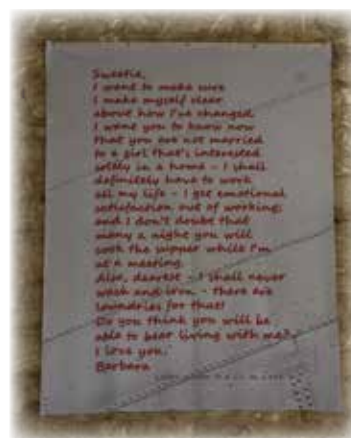 Sweetie,
I want to make sure
I make myself clear
about how I've changed.
I want you to know now
that you are not married
to a girl that's interested
solely in a home - I shall
definitely have to work
all my life - I get emotional
satisfaction out of working;
and I don't doubt that
many a night you will
cook the supper while I'm
at a meeting.
Also, dearest - I shall never
wash and iron - there are
laundries for that!
Do you think you will be
able to bear living with me?
I love you,
Barbara